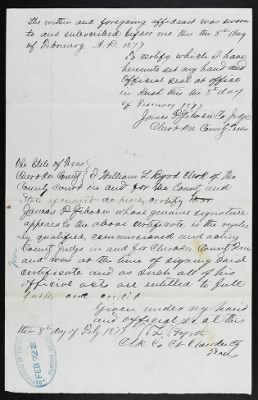 The within and foregoing affidavit was sworn
to and subscribed before me this the 8th day
of February A.D. 1877
To certify which I have
hereunto set my hand and
official seal at office
in Rusk this the 8th day
of February 1877
James P. Gibson Co Judge
Cherokee County Texas
The State of Texas
Cherokee County I William L Byrd Clerk of the
County Court in and for the County and
State aforesaid do hereby certify that
James P Gibson whose genuine signature
appears to the above certificate is the regularly
qualified, commissioned and acting
County Judge in and for Cherokee County Texas
and was at the time of signing said
certificate and as such all of his
official acts are entitled to full
faith and credit
Given under my hand
and official seal this
the 8th day of Feby 1877 W L Byrd
Clk Co Ct Cherokee Co
Texas
FEB 22